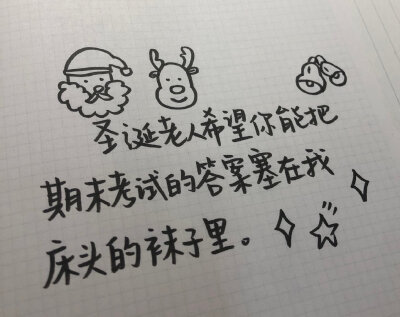 圣诞老人希望你能把
期末考试的答案塞在我
床头的袜子里。